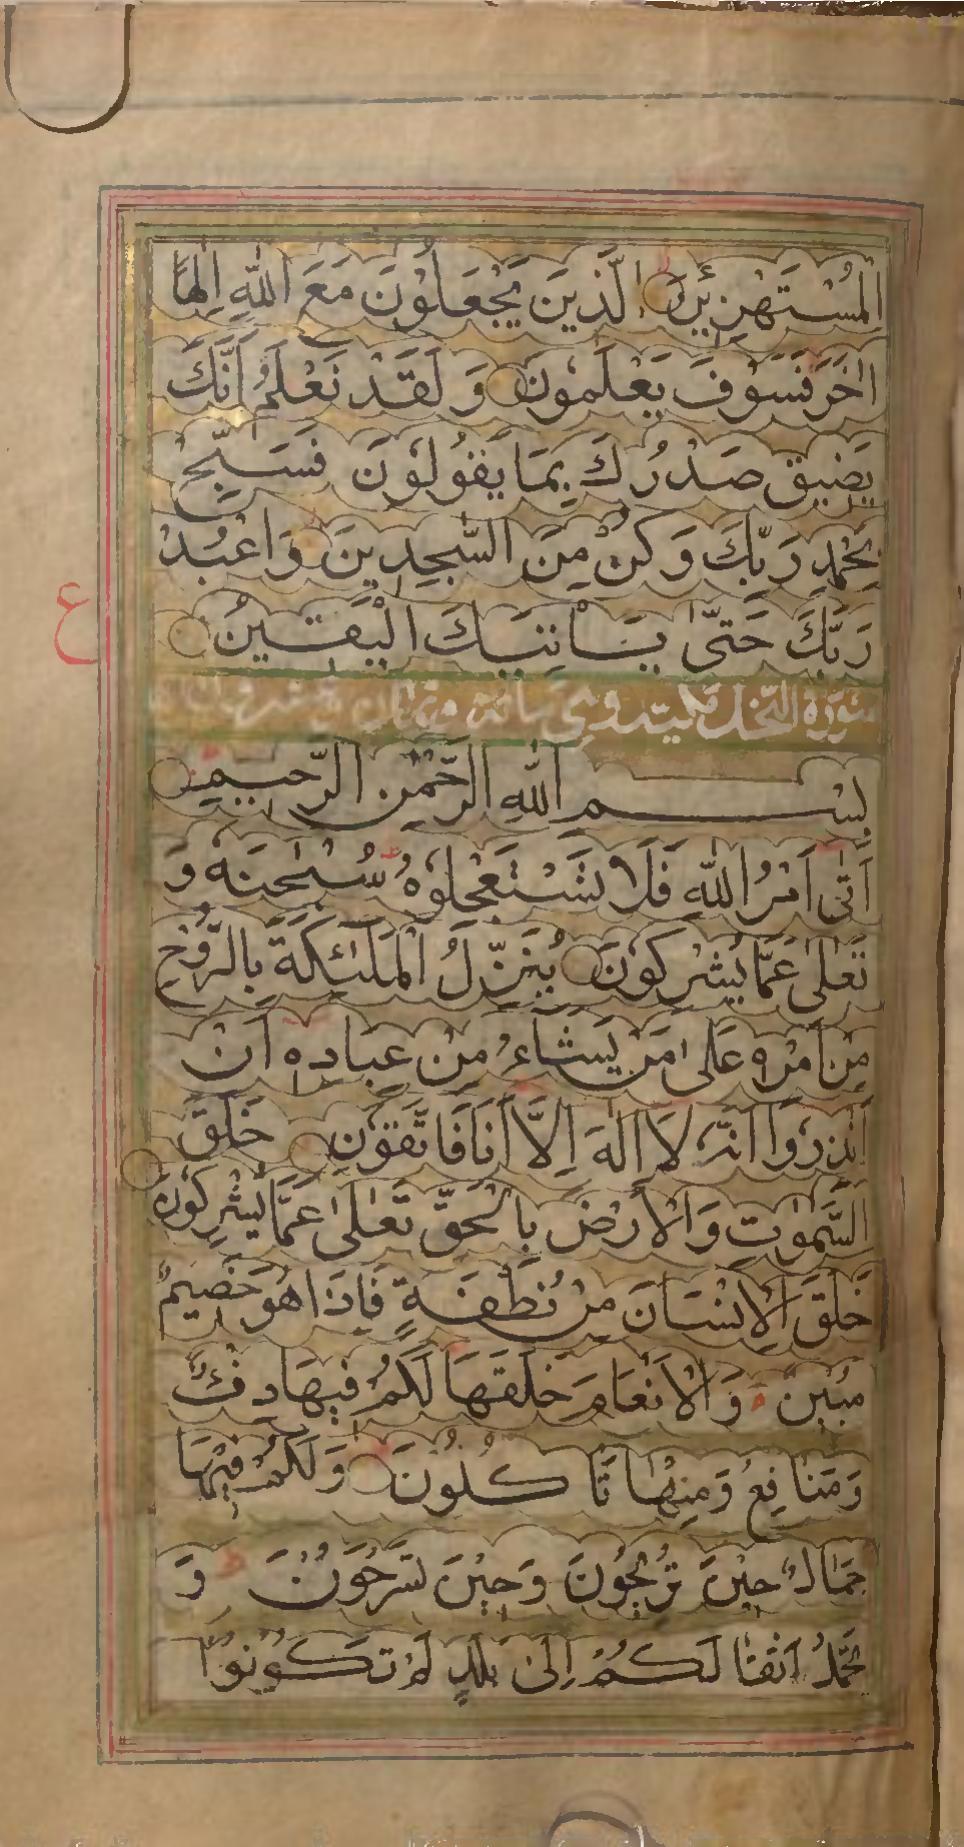 المُسْتَهْزِئِينَ الَّذِينَ يَجْعَلُوْنَ مَعَ اللّٰهِ اِلٰهًا
اٰخَرَ فَسَوْفَ يَعْلَمُوْنَ وَ لَقَدْ نَعْلَمُ اَنَّكَ
يَضِيقُ صَدْرُكَ بِمَا يَقُولُوْنَ فَسَبِّحْ
بِحَمْدِ رَبِّكَ وَكُنْ مِنَ السّٰجِدِينَ وَاعْبُدْ
رَبَّكَ حَتّٰى يَاْتِيَكَ الْيَقِينُ
ع
سُوْرَة النَّحْل مَكِّيَّة وهي
بِسْمِ اللّٰهِ الرَّحْمٰنِ الرَّحِيمِ
اَتٰى اَمْرُ اللّٰهِ فَلَا تَسْتَعْجِلُوْهُ سُبْحٰنَهٗ وَ
تَعٰلٰى عَمَّا يُشْرِكُوْنَ يُنَزِّلُ الْمَلٰئِكَةَ بِالرُّوْحِ
مِنْ اَمْرِهٖ عَلٰى مَنْ يَّشَآءُ مِنْ عِبَادِهٖ اَنْ
اَنْذِرُوْا اَنَّهٗ لَا اِلٰهَ اِلَّا اَنَا فَاتَّقُوْنِ خَلَقَ
السَّمٰوٰتِ وَالْاَرْضَ بِالْحَقِّ تَعٰلٰى عَمَّا يُشْرِكُوْنَ
خَلَقَ الْاِنْسَانَ مِنْ نُطْفَةٍ فَاِذَا هُوَ خَصِيمٌ
مُبِيْنٌ وَالْاَنْعَامَ خَلَقَهَا لَكُمْ فِيهَا دِفْءٌ
وَمَنَافِعُ وَمِنْهَا تَاْكُلُوْنَ وَلَكُمْ فِيْهَا
جَمَالٌ حِيْنَ تُرِيْحُوْنَ وَحِيْنَ تَسْرَحُوْنَ وَ
تَحْمِلُ اَثْقَالَكُمْ اِلٰى بَلَدٍ لَمْ تَكُوْنُوْا